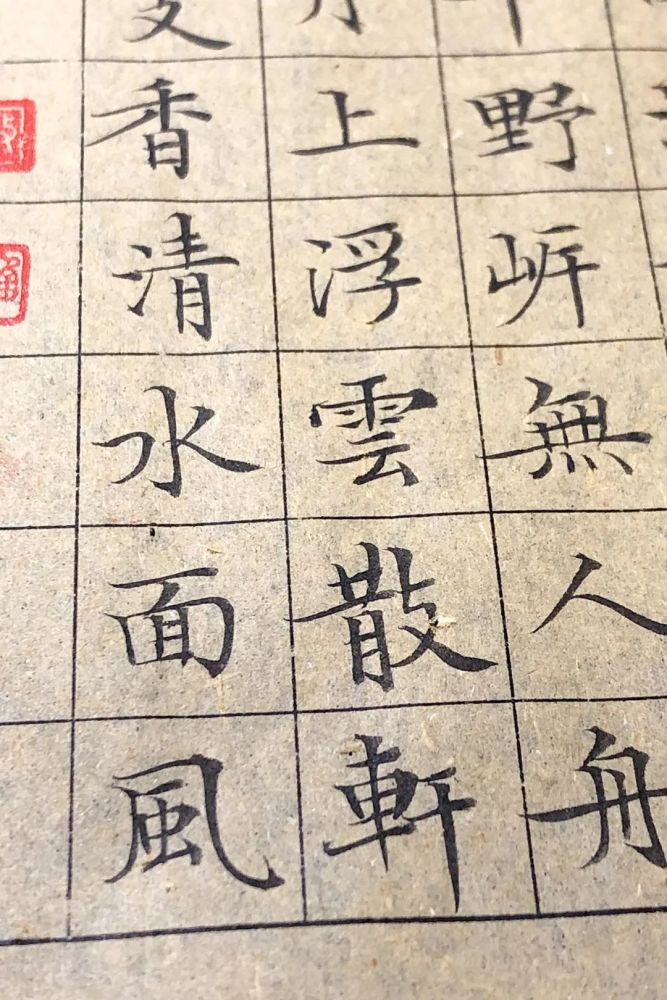 野岸無人舟
上浮雲散軒
香清水面風